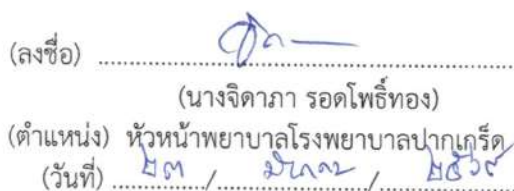 (ลงชื่อ) ..........................................................
(นางจิดาภา รอดโพธิ์ทอง)
(ตำแหน่ง) หัวหน้าพยาบาลโรงพยาบาลปากเกร็ด
(วันที่) ๒๓ / / ๒๕๖๙